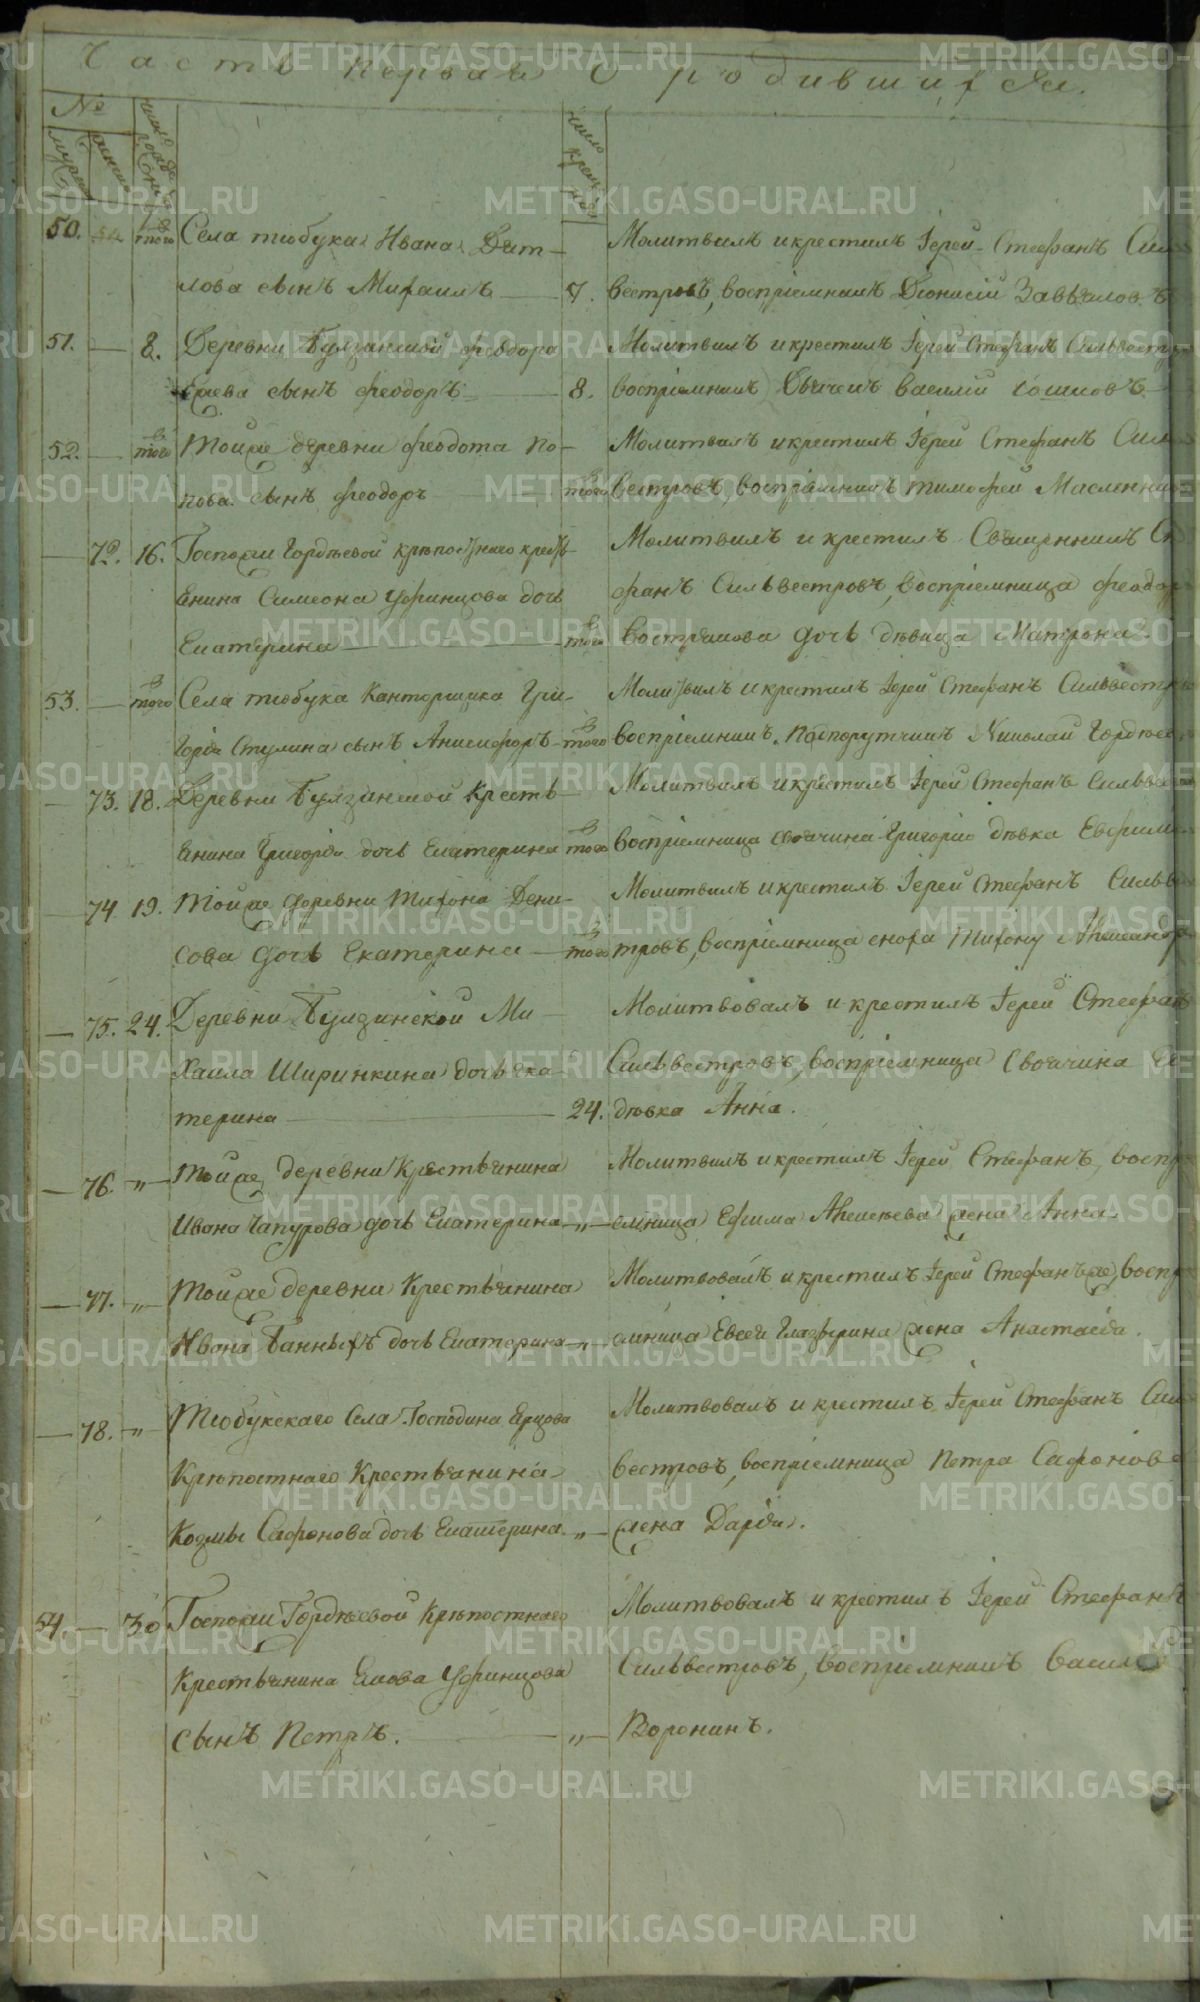 Часть первая О родившихся.
№
число рождения
число крещения
мужеск
женска
50. того Села тюбука Ивана Дят-
лова сынъ Михаилъ 7.
Молитвилъ и крестилъ Іерей Стефанъ Сил
вестровъ, воспріемникъ Діонисій Завьяловъ
51. 8. Деревни Булзинской феодора
сынъ феодоръ 8.
Молитвилъ и крестилъ Іерей Стефанъ Сильвестр
воспріемникъ Василій
52. в того Тойже деревни феодота По-
пова сынъ феодоръ в того
Молитвилъ и крестилъ Іерей Стефанъ Силь
вестровъ, воспріемникъ тимофей Масленник
72. 16. Госпожи Гордѣевой крѣпостнаго кресть-
янина Симеона Уфинцова дочь
Екатерина в того
Молитвилъ и крестилъ Священникъ Сте
фанъ Сильвестровъ, воспріемница феодор
Вострякова дочь дѣвица Матрона.
53. в того Села тюбука Канторщика Гри-
горія Ступина сынъ Анисифоръ в того
Молитвилъ и крестилъ Іерей Стефанъ Сильвестр
воспріемникъ Подпорутчикъ Николай Гордѣев
73. 18. Деревни Булзинской Кресть-
янина Григорія дочь Екатерина в того
Молитвилъ и крестилъ Іерей Стефанъ Сильве
воспріемница своячина Григорію дѣвка Евфими
74. 19. Тойже деревни Тихона Дени-
сова дочь Екатерина в того
Молитвилъ и крестилъ Іерей Стефанъ Сильв
тровъ, воспріемница сноха Тихону Александр
75. 24. Деревни Булзинской Ми-
хаила Ширинкина дочь ека-
терина 24.
Молитвовалъ и крестилъ Іерей Стефан
Сильвестровъ, воспріемница Своячина Е
дѣвка Анна.
76. „ Тойже деревни Крестьянина
Ивана Чапурова дочь Екатерина „
Молитвилъ и крестилъ Іерей Стефанъ, воспр
емница Ефима Алексѣева жена Анна.
77. „ Тойже деревни Крестьянина
Ивана Банныхъ дочь Екатерина „
Молитвовалъ и крестилъ Іерей Стефанъ же, воспр
емница Евсея жена Анастасія.
78. „ Тюбукскаго Села Господина
Крѣпостнаго Крестьянина
Козмы Сафонова дочь Екатерина „
Молитвовалъ и крестилъ Іерей Стефанъ Сил
вестровъ, воспріемница Петра Сафонова
жена Дарія.
54. 30 Госпожи Гордѣевой Крѣпостнаго
Крестьянина Уфинцова
Сынъ Петръ. „
Молитвовалъ и крестилъ Іерей Стефанъ
Сильвестровъ, воспріемникъ Васил
Воронинъ.
METRIKI.GASO-URAL.RU